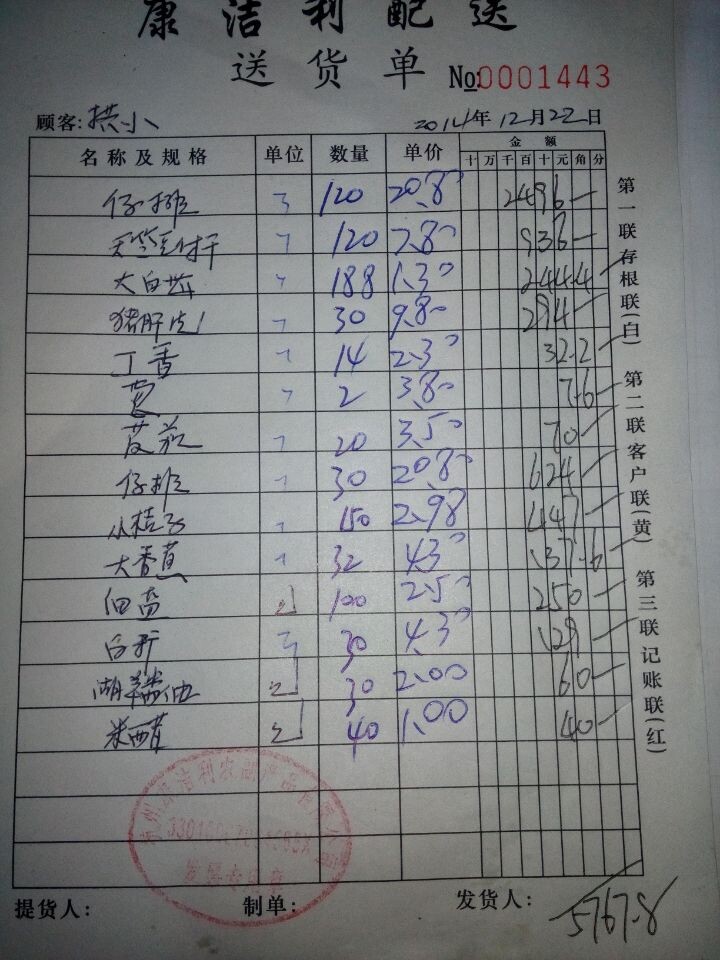 康洁利配送
送货单 №0001443
顾客: 拱小 2014年12月22日
名称及规格 单位 数量 单价 金额
十 万 千 百 十 元 角 分
仔排 120 20.80 2496—
天竺豆付干 120 7.80 936—
大白菜 188 1.30 244.4
猪肝 30 9.80 294—
丁香 14 2.30 32.2
2 3.80 7.6
20 3.50 70—
仔排 30 20.80 624—
小桔子 150 2.98 447—
大香蕉 32 4.30 137.6
细盐 100 2.50 250—
30 4.30 129—
30 2.00 60—
米醋 40 1.00 40—
第一联存根联(白)
第二联客户联(黄)
第三联记账联(红)
提货人: 制单: 发货人:
5767.8